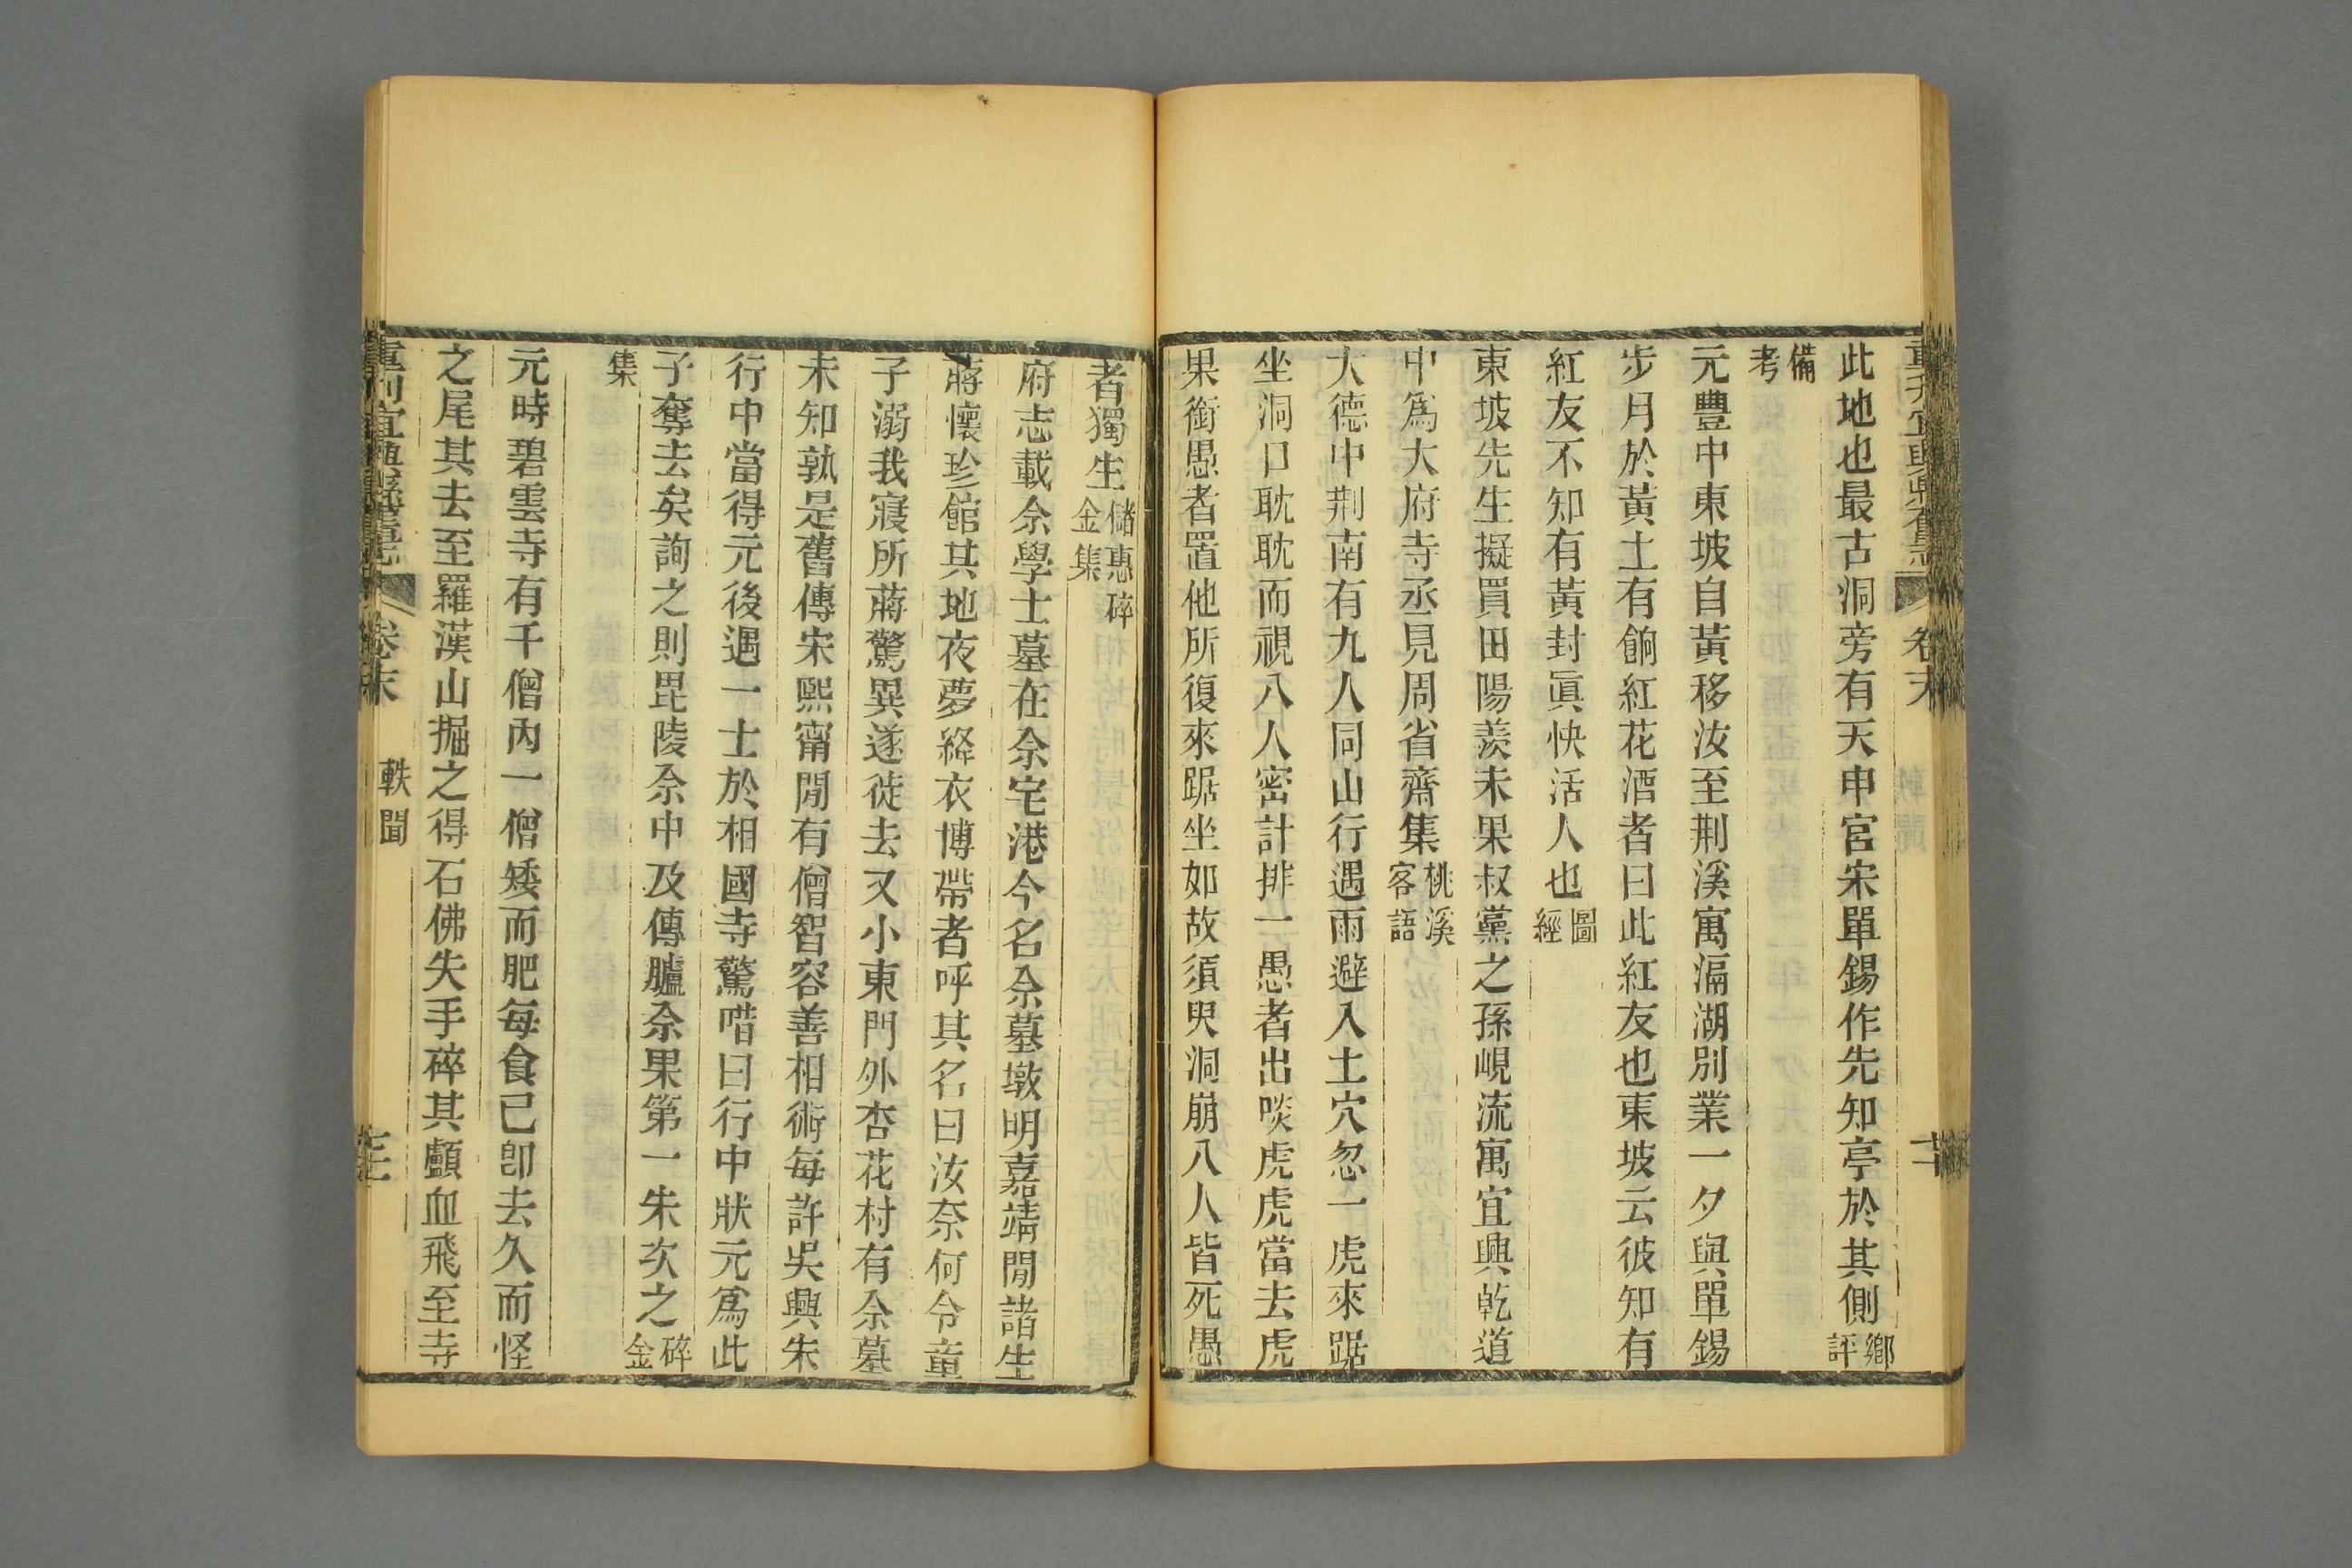 此地也最古洞旁有天申宮宋單錫作先知亭於其側鄉評
備考
元豐中東坡自黃移汝至荆溪寓滆湖別業一夕與單錫
步月於黃土有餉紅花酒者曰此紅友也東坡云彼知有
紅友不知有黃封眞快活人也圖經
東坡先生擬買田陽羨未果叔黨之孫峴流寓宜興乾道
中爲大府寺丞見周省齋集桃溪客語
大德中荆南有九人同山行遇雨避入土穴忽一虎來踞
坐洞口耽耽而視八人密計排一愚者出啖虎虎當去虎
果銜愚者置他所復來踞坐如故須臾洞崩八人皆死愚
者獨生儲惠碎金集
府志載佘學士墓在佘宅港今名佘墓墩明嘉靖閒諸生
蔣懷珍館其地夜夢絳衣博帶者呼其名曰汝奈何令童
子溺我寢所蔣驚異遂徙去又小東門外杏花村有佘墓
未知孰是舊傳宋熙甯閒有僧智容善相術每許吳興朱
行中當得元後遇一士於相國寺驚喈曰行中狀元爲此
子奪去矣詢之則毘陵佘中及傳臚佘果第一朱次之碎金
集
元時碧雲寺有千僧內一僧矮而肥每食已卽去久而怪
之尾其去至羅漢山掘之得石佛失手碎其顱血飛至寺
卷末
軼聞